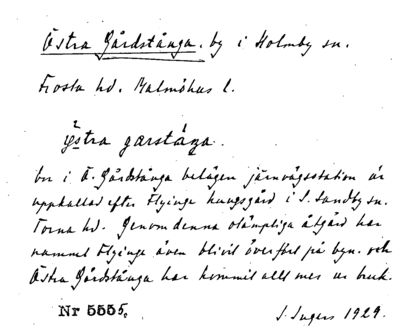 Östra Gårdstånga. by i Holmby sn.
Frosta hd. Malmöhus l.
östra garståŋa.
En i Ö. Gårdstånga belägen järnvägsstation är
uppkallad efter Flyinge kungsgård i S. Sandby sn.
Torna hd. Genom denna olämpliga åtgärd har
namnet Flyinge även blivit överfört på byn. och
Östra Gårdstånga har kommit allt mer ur bruk.
Nr 5555.
I. Ingers 1929.